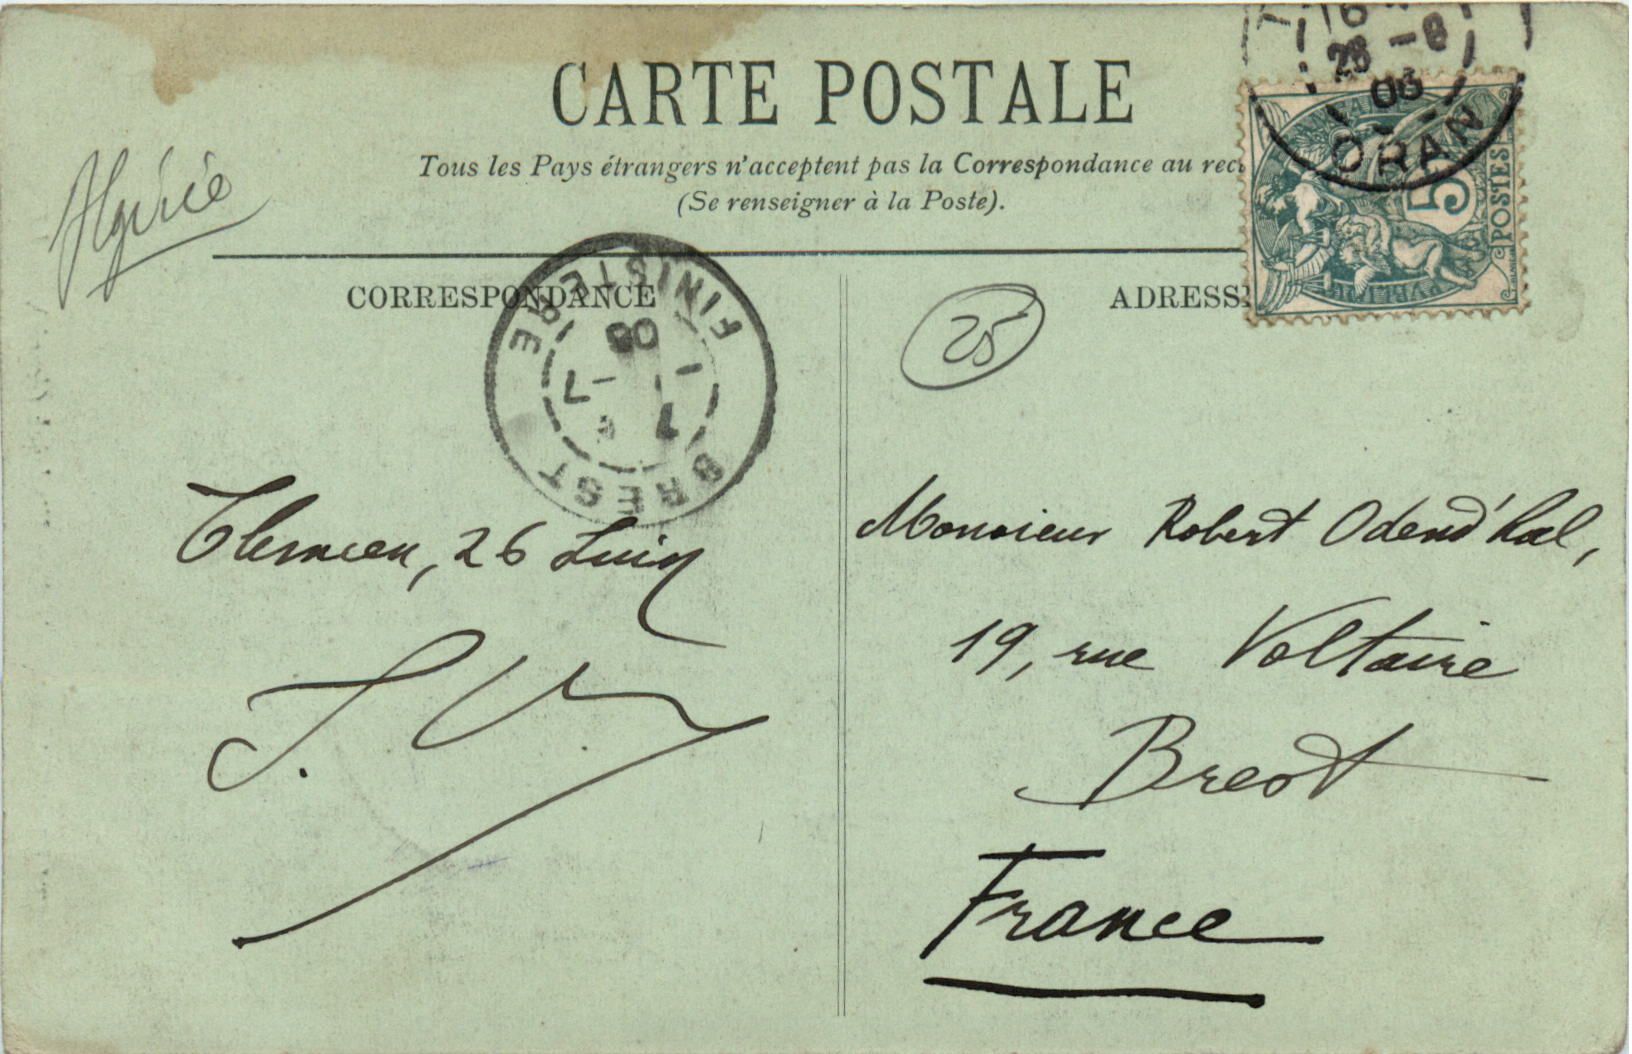 CARTE POSTALE
Tous les Pays étrangers n'acceptent pas la Correspondance au rec
(Se renseigner à la Poste).
Algérie
16
26 -6
ORAN
5
POSTES
CORRESPONDANCE
ADRESS
25
BREST
FINISTERE
1 -7
Tlemcen, 26 Juin
Monsieur Robert Odend'hal,
19, rue Voltaire
Brest
France